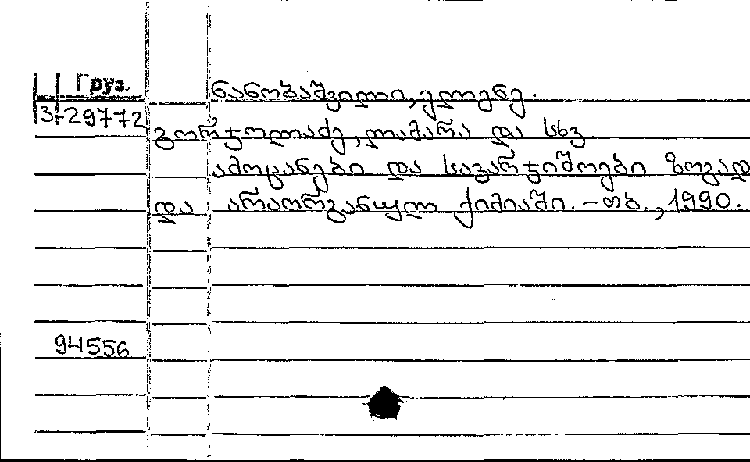 Груз.
ნანობაშვილი, ელენე.
3-29772
გორჯოლაძე, ლამარა და სხვ.
ამოცანები და სავარჯიშოები ზოგად
და არაორგანულ ქიმიაში. - თბ., 1990.
94556